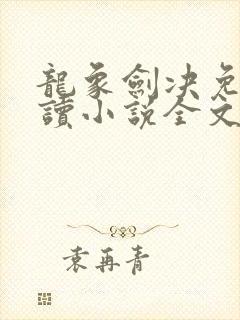 龍象劍決免
讀小說全文
袁再青